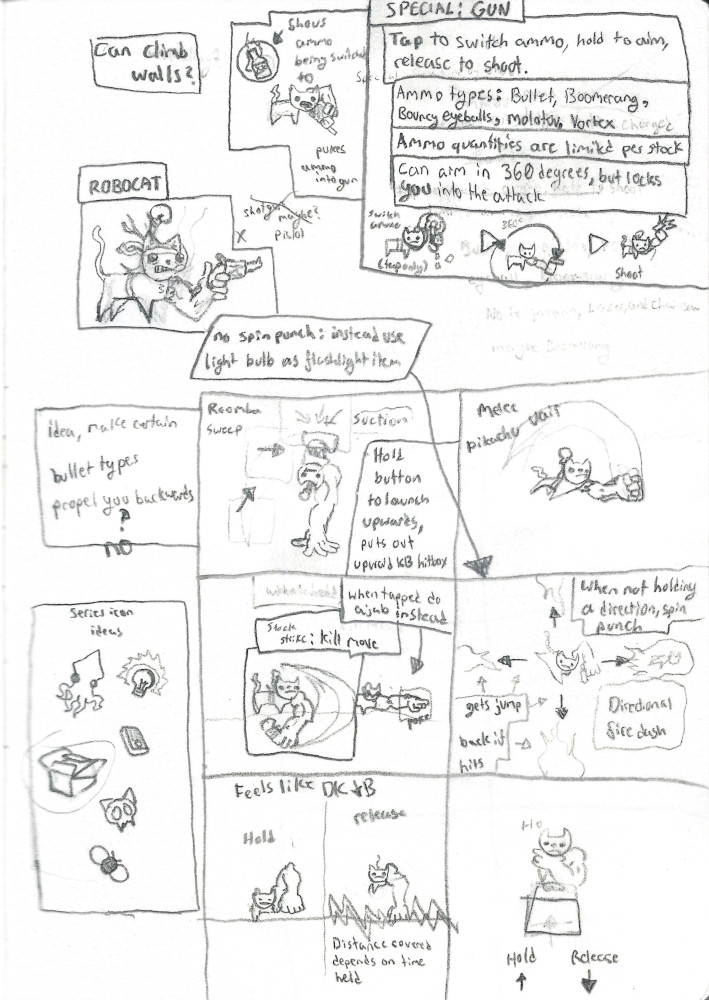 Can climb
walls?
Shows
ammo
being switched
to
pukes
ammo
into gun
SPECIAL: GUN
Tap to switch ammo, hold to aim,
release to shoot.
Ammo types: Bullet, Boomerang,
Bouncy eyeballs, molotov, Vortex
Ammo quantities are limited per stock
Can aim in 360 degrees, but locks
you into the attack
Switch
ammo
(tap only)
360°
shoot
ROBOCAT
shotgun maybe?
X
Pistol
No
maybe Boomerang
no spin punch: instead use
light bulb as flashlight item
idea, make certain
bullet types
propel you backwards
?
no
Roomba
sweep
suction
Hold
button
to launch
upwards,
puts out
upward KB hitbox
Melee
pikachu Uair
when tapped do
a jab instead
strike: kill move
poke
When not holding
a direction, spin
punch
gets jump
back if
hits
Directional
fire dash
Series icon
ideas
Feels like DK ↓B
Hold
release
Distance covered
depends on time
held
Ho
Hold
Release